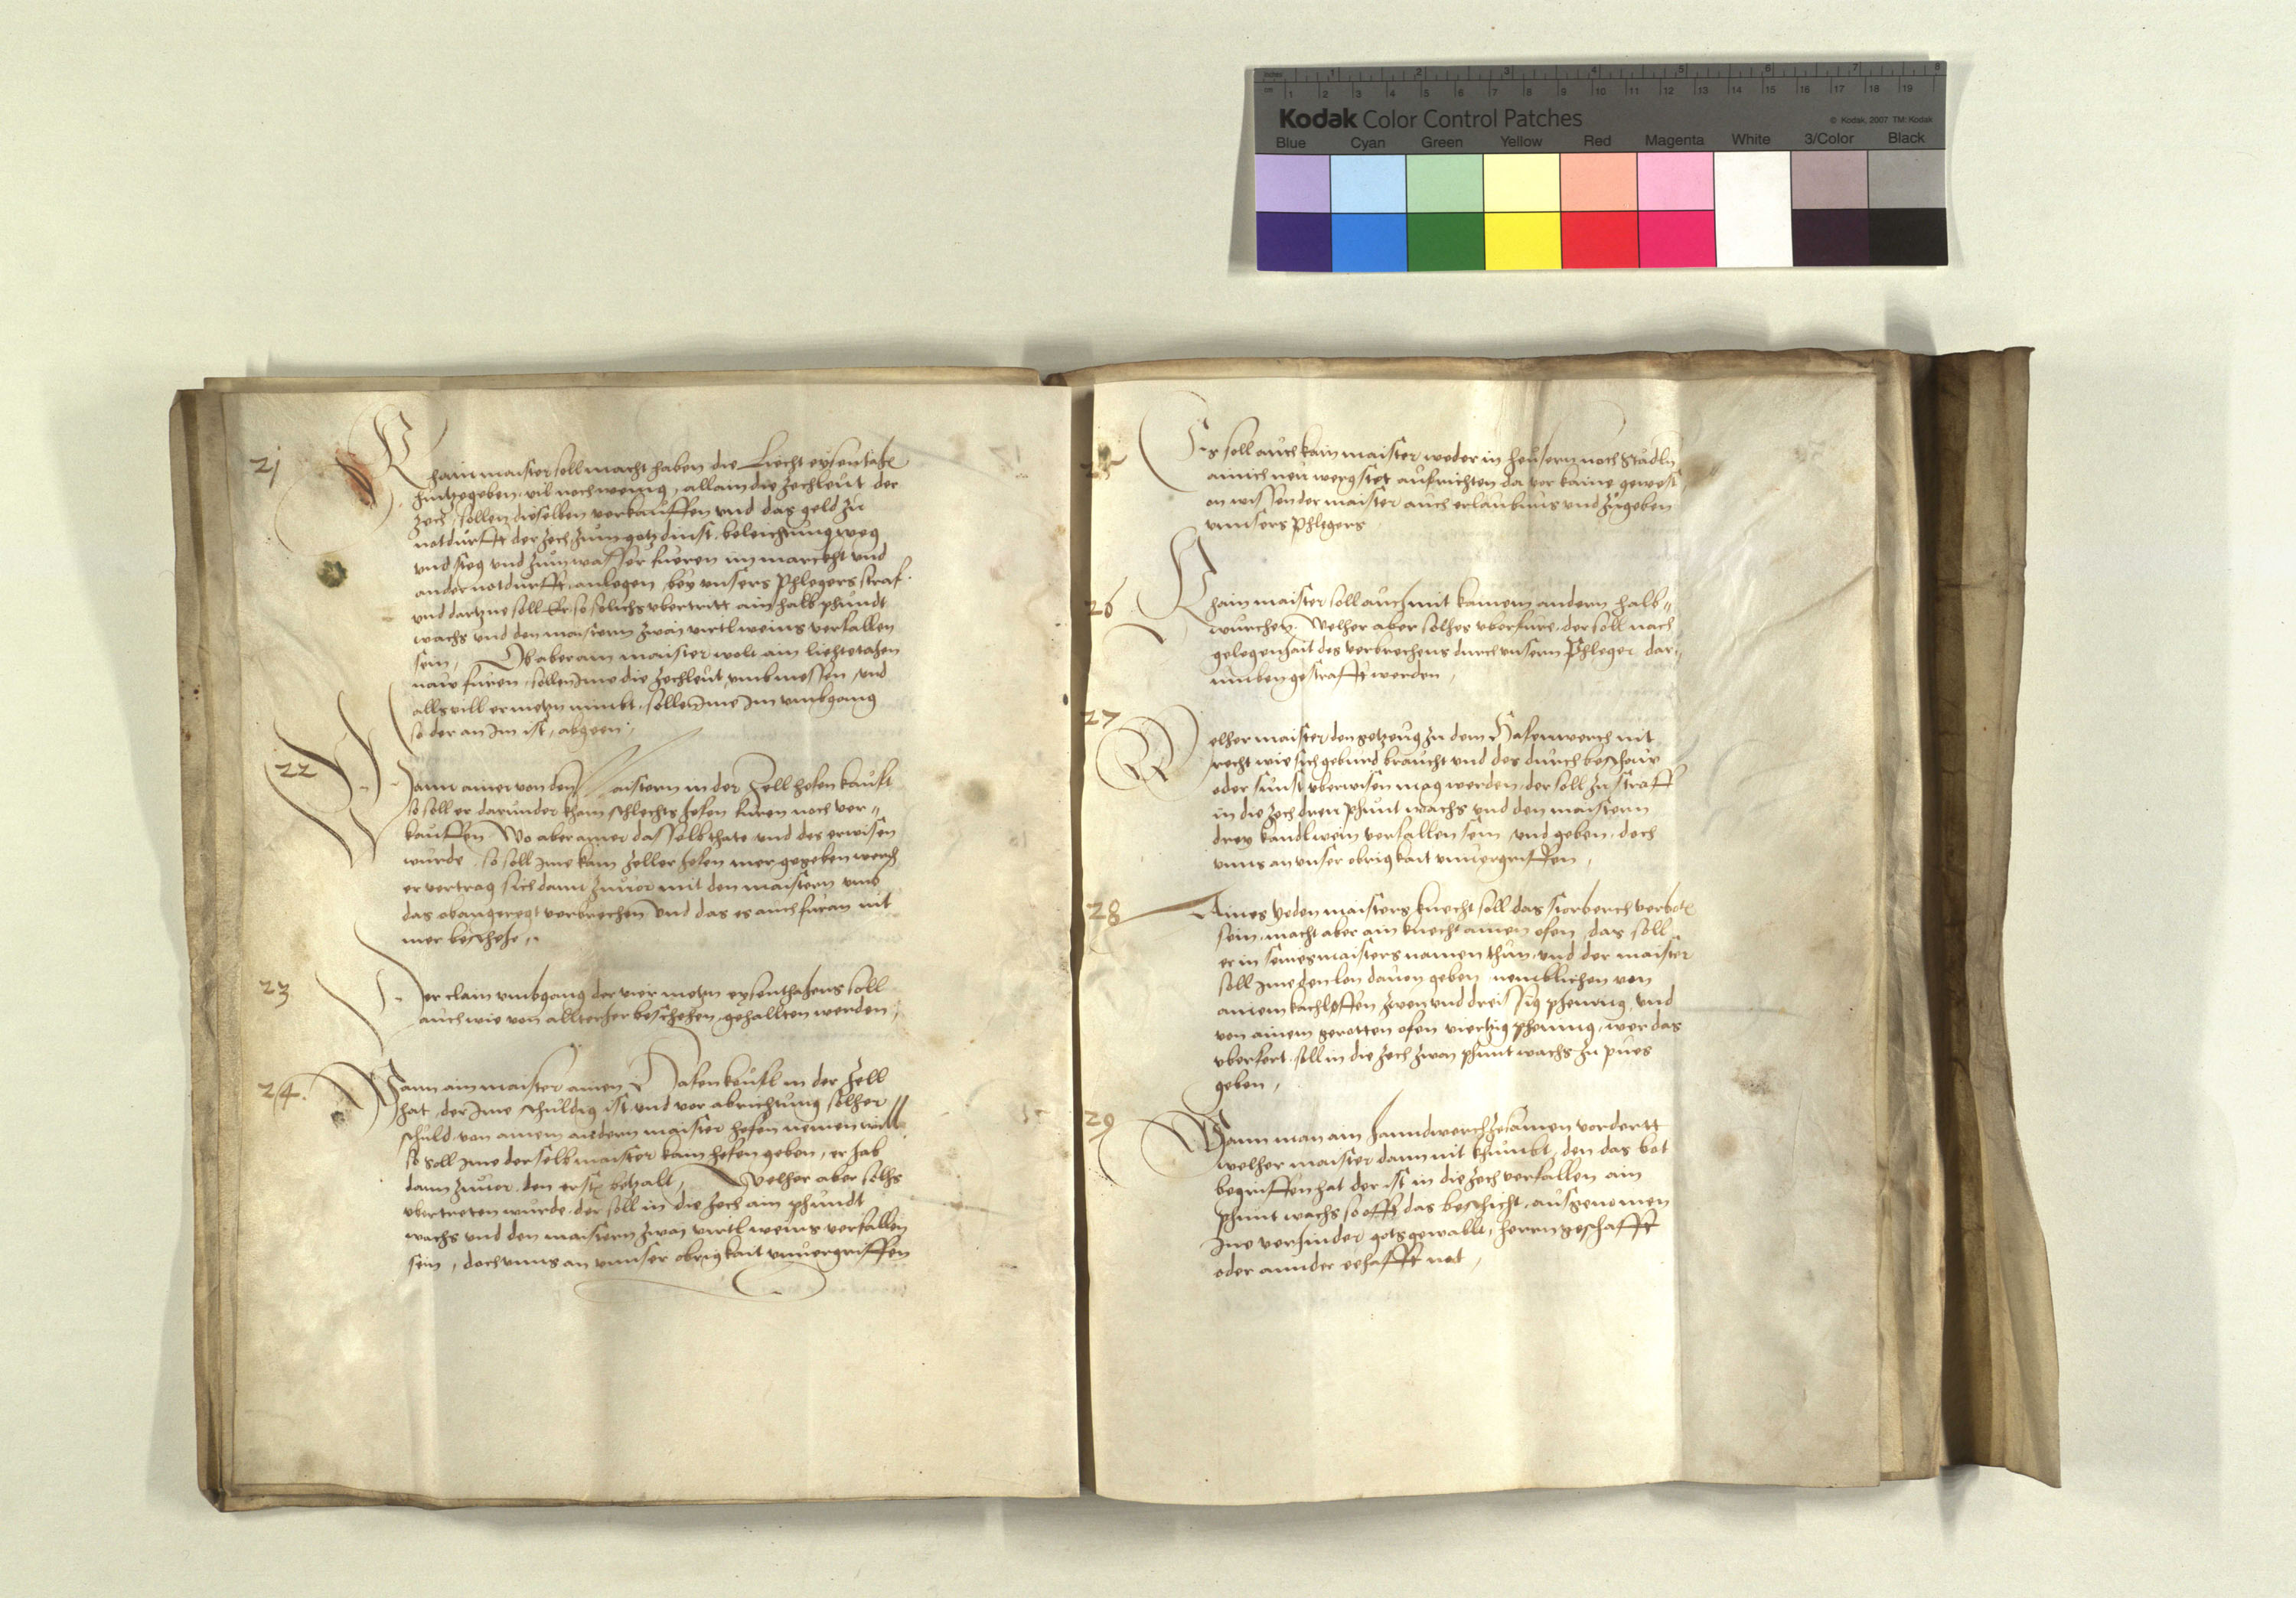 inches 1 2 3 4 5 6 7 8
cm 1 2 3 4 5 6 7 8 9 10 11 12 13 14 15 16 17 18 19
Kodak Color Control Patches
© Kodak, 2007 TM: Kodak
Blue Cyan Green Yellow Red Magenta White 3/Color Black
21
Khain maister soll macht haben die Liecht eysentahe
hintzegeben vil noch wenig, allain die zechleut der
zech sollen dieselben verkauffen und das geld zu
notdurfft der zech zum gotzdinst, beleichtung weg
und steg und zum wasser fueren im marckht und
ander notdurfft anlegen, bey unsers Phlegers straf.
und dartzue soll Er so solichs ubertritt ain halb phundt
wachs und den maistern zwai virtl weins verfallen
sein, Ob aber ain maister wolt ain liechtetahen
naus furen, sollen Ime die zechleut umbmessen, und
alls vill er metzn nimbt, sollen Ime Im umbgang
so der an Im ist, abgeen.
22
Wann ainer von den Maistern in der Zell hefen kauft
so soll er darunder kham schlechts hefen furen noch ver=
kauffen Wo aber ainer dasselb thate und des erwisen
wurde, so soll Ime kain Zeller hefen mer gegeben werden
er vertrag sich dann zuuor mit den maistern umb
das obangeregt verbrechen und das es auch furan nit
mer beschehe,
23
Der clain umbgang der vier metzn eysenthahens soll
auch wie von allter her beschehen, gehallten werden,
24.
Wann ain maister ainen Hafenkeufl in der Zell
hat, der Ime schuldig ist und vor abrichtung solher
schuld von ainem andern maister hefen nemen will
so soll Ime derselb maister kain hefen geben, er hab
dann zuuor den erste betzalt, Welher aber solhs
ubertreten wurde, der soll in die zech ain phundt
wachs und den maistern zwai virtl weins verfallen
sein, doch unns an unnser obrigkait unuergriffen
25
Es soll auch kain maister weder in heusern noch Städln
ainich neu wergstet aufrichten da vor kaine gewest,
on wissen der maister auch erlaubnus und zugeben
unnsers Phlegers
26
Khain maister soll auch mit kainem andern halb=
wurchen, Welher aber solhes uberfure, der soll nach
gelegenhait des verbrechens durch unsern Phleger dar=
umben gestrafft werden,
27
Welher maister den getzeug zu dem Hafenwerch nit
recht wie sich geburd braucht und des durch beschau
oder sunst uberwisen mag werden, der soll zu straff
in die zech dreu phunt wachs und den maistern
drey kandl wein verfallen sein, und geben, doch
unns an unser obrigkait unuergriffen,
28
Aines yeden maisters knecht soll das storberch verbote
sein, macht aber ain knecht ainen ofen, das soll
er in seines maisters namen thun, und der maister
soll Ime den lon dauon geben nemblichen von
ainem kachloffen zwen und dreissig phening, und
von ainem gerotten ofen viertzig phening, wer das
uberfert, soll in die zech zwai phunt wachs zu pues
geben,
29
Wann man ain hanndwerch zesamen vordertt
welher maister dann nit khumbt, den das bot
begriffen hat der ist in die zech verfallen ain
phunt wachs so offt das beschicht, ausgenomen
Ine verhinder gots gewallt, herrn geschafft
oder annder eehafft not,